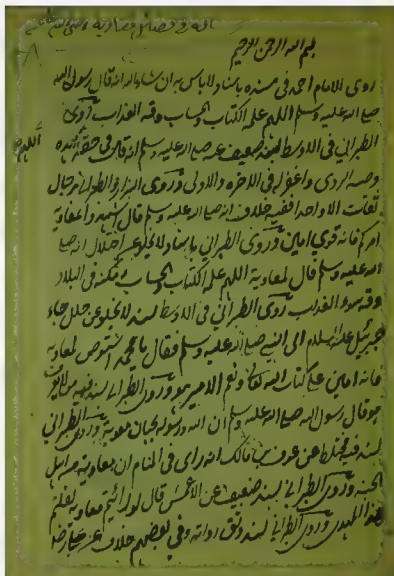 بسم الله الرحمن الرحيم
روى الامام احمد فى مسنده باسناد لا باس به ان شاء الله انه قال رسول الله
صلى الله عليه وسلم اللهم علمه الكتاب والحساب وقه العذاب وروى
الطبراني فى الاوسط بسند ضعيف عنه صلى الله عليه وسلم انه قال فى حقه اللهم اهده
وجنبه الردى واغفر له فى الاخرة والاولى وروى البزار والطبراني برجال
ثقات الا واحد ففيه خلاف انه صلى الله عليه وسلم قال اشهدوا معاوية
امركم فانه قوي امين وروى الطبراني باسناد لا يخلو عن اختلال انه صلى
الله عليه وسلم قال لمعاوية اللهم علمه الكتاب والحساب ومكنه فى البلاد
وقه سوء العذاب روى الطبراني فى الاوسط بسند لا يخلو عن خلل جاء
جبرئيل عليه السلام الى النبي صلى الله عليه وسلم فقال يا محمد استوص لمعاوية
فانه امين على كتاب الله تعالى ونعم الامين هو وروى الطبراني بسند فيه من لا يعرف
هو قال رسول الله صلى الله عليه وسلم ان الله ورسوله يحبان معوية وروى الطبراني
بسند فيه مختلط عن عوف بن مالك انه راى فى المنام ان معاوية من اهل
الجنة وروى الطبراني بسند ضعيف عن الاعمش قال لو رائيتم معاوية لقلتم
هذا المهدى وروى الطبراني بسند وثق رواته وفى بعضهم خلاف عنه